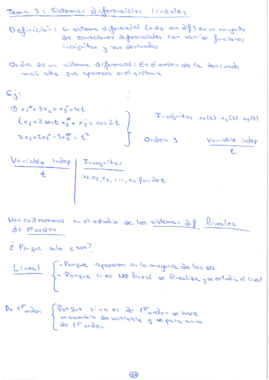 Tema 3: Sistemas diferenciales lineales
Definición: Un sistema diferencial (o de ec. dif) es un conjunto
de ecuaciones diferenciales con varias funciones
incógnitas y sus derivadas
Orden de un sistema diferencial: Es el orden de la derivada
más alta que aparece en el sistema
Ej:
Incógnitas x₁(t) x₂(t) x₃(t)
Orden 3
Variable indep
t
Variable indep | Incógnitas
t | x₁, x₂, x₃, ..., xₙ
Nos centraremos en el estudio de los sistemas dif lineales
de 1er orden
¿Porque solo esos?
Lineal
- Porque aparecen en la mayoría de los
- Porque si es No lineal se linealiza y se estudia el lineal
De 1er orden
Porque si no es de 1er orden se hace
un cambio de variable y se pasa a uno
de 1er orden